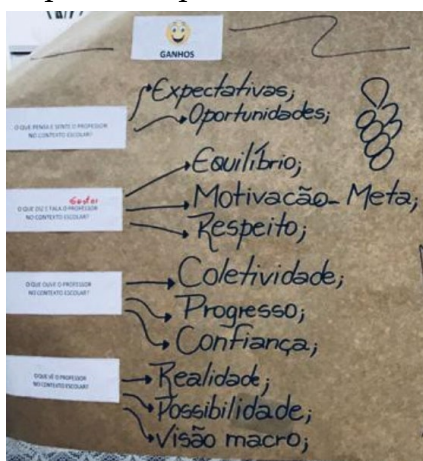 GANHOS
O QUE PENSA E SENTE O PROFESSOR
NO CONTEXTO ESCOLAR?
Expectativas;
Oportunidades;
Gestor
O QUE DIZ E FALA O PROFESSOR
NO CONTEXTO ESCOLAR?
Equilíbrio;
Motivacão - Meta;
Respeito;
O QUE OUVE O PROFESSOR
NO CONTEXTO ESCOLAR?
Coletividade;
Progresso;
Confiança;
O QUE VÊ O PROFESSOR
NO CONTEXTO ESCOLAR?
Realidade;
Possibilidade;
Visão macro;